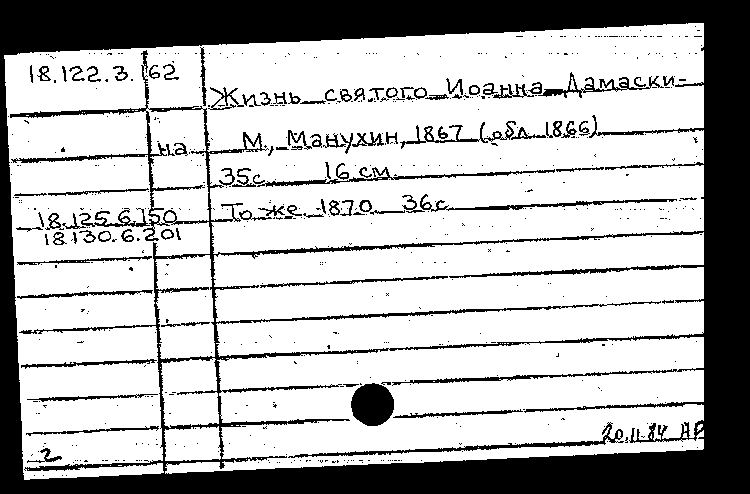 18.122.3.162
Жизнь святого Иоанна Дамаски-
на М., Манухин, 1867 (обл. 1866)
35с. 16 см.
18.125.6.150 То же. 1870. 36с.
18.130.6.201
2
20.11.84 АР